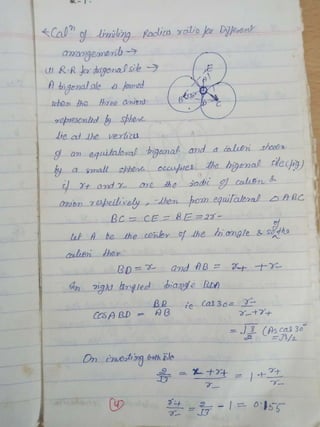 * Calⁿ of limiting Radius ratio for Different
arrangements →
(1) R.R for trigonal site →
A trigonal site is formed
when the three anions
represented by sphere
lie at the vertices
of an equilateral trigonal and a cation shown
by a small sphere occupies the trigonal site (fig)
if r+ and r- are the radii of cation &
anion respectively, then form equilateral △ ABC
BC = CE = BE = 2r-
let A be the center of the triangle & of the
cation then
BD = r- and AB = r+ + r-
In right angled triangle BDA
Cos ABD = BD/AB ie Cos 30 = r-/r- + r+
= √3/2 (As cos 30° = √3/2
On inverting both side
2/√3 = r- + r+/r- = 1 + r+/r-
(4) r+/r- = 2/√3 - 1 = 0.155